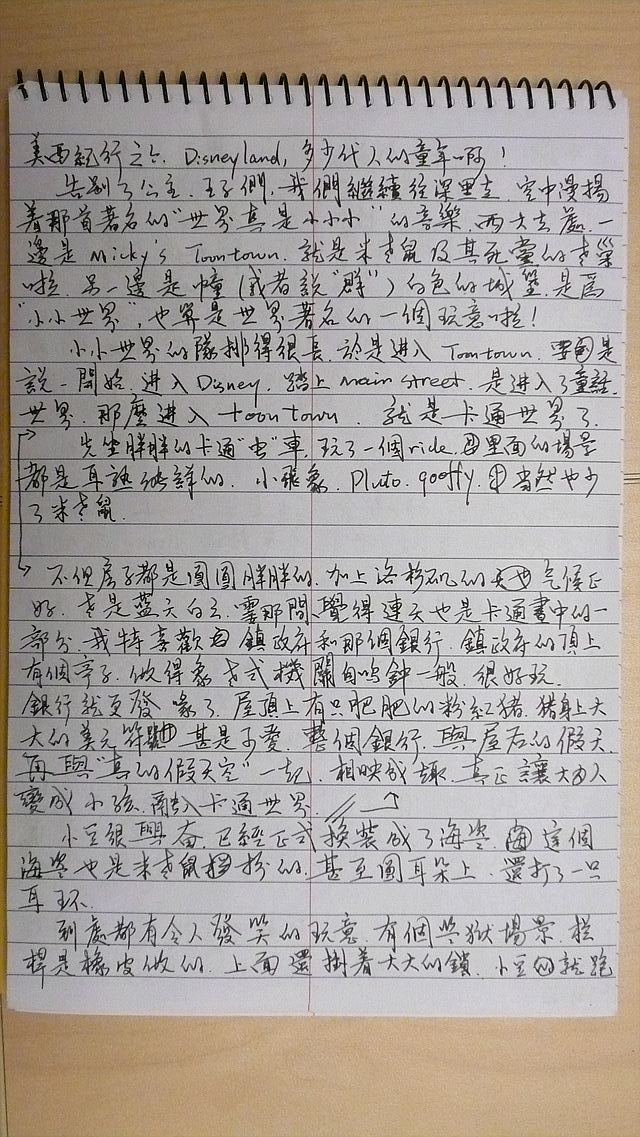 美西紀行之六. Disneyland, 多少代人的童年啊!
告别了公主.王子們,我們繼續往深里走 空中漫揚
着那首著名的"世界真是小小小"的音樂.兩大去處.一
邊是Micky's Toontown.就是米老鼠及其死黨的老巢
啦.另一邊是幢(或者說"群")白色的城堡.是爲
"小小世界",也算是世界著名的一個玩意啦!
小小世界的隊排得很長.於是進入Toontown.要是
說一開始.進入Disney.踏上main street.是進入了童話
世界.那麼進入toontown.就是卡通世界了.
先坐胖胖的卡通"虫"車.玩了一個ride.里面的場景
都是耳熟能詳的.小飛象.Pluto.gooffy.当然也少
了米老鼠.
不但房子都是圓圓胖胖的.加上洛杉矶的天气候正
好.老是蓝天白云.霎那間覺得連天也是卡通書中的一
部分.我特喜歡鎮政府和那個銀行.鎮政府的頂上
有個亭子.做得象老式機關自鸣鈡一般.很好玩.
銀行就更發噱了.屋頂上有只肥肥的粉紅猪.猪身上大
大的美元符號 甚是可愛.整個銀行.與屋后的假天.
再與"真的假天空"一起.相映成趣.真正讓大人
變成小孩.融入卡通世界.
小豆很興奋.已經正式換裝成了海盗.這個
海盗也是米老鼠扮的.甚至圓耳朵上.還打了一只
耳环.
到處都有令人發笑的玩意 有個監狱場景.栏
桿是橡皮做的.上面還掛着大大的鎖.小豆就跑